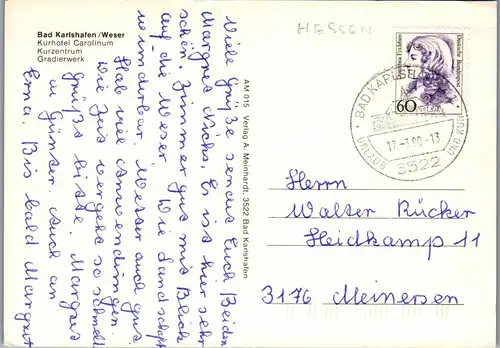 HESSEN
Bad Karlshafen/Weser
Kurhotel Carolinum
Kurzentrum
Gradierwerk
Viele Grüße sendet Euch Beiden
Margret Nichs. Es ist hier sehr
schön. Zimmer gut mit Blick
auf die Weser. Die Landschaft
wunderbar. Wetter auch gut
Hab viel Anwendungen.
Die Zeit vergeht so schnell
grüßt bitte Margret
u Günter. Auch an
Erna. Bis bald Margret
AM 015 Verlag A. Meinhardt, 3522 Bad Karlshafen
Deutsche Bundespost
60
BAD KARLSHAFEN
17.-3.90-13
3522
URLAUB UND KUR
Herrn
Walter Rücker
Heidkamp 11
3176 Meinersen